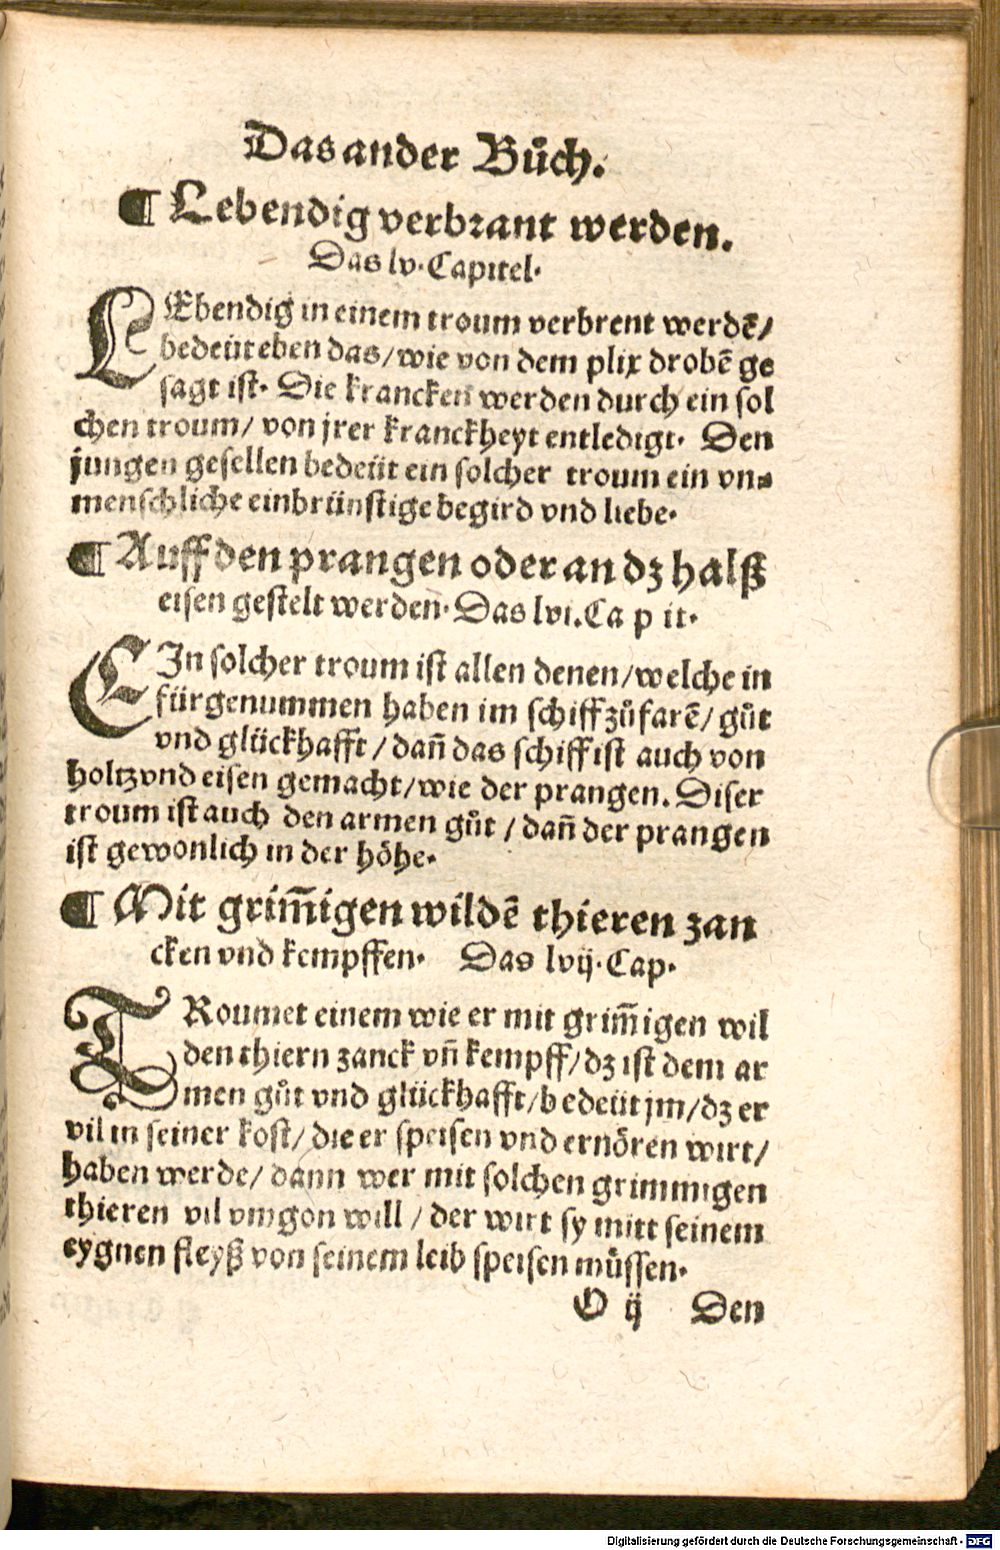 Das ander Bůch.
¶ Lebendig verbrant werden.
Das lv. Capitel.
LEbendig in einem troum verbrent werdē/
bedeüt eben das/ wie von dem plix drobē ge
sagt ist. Die krancken werden durch ein sol
chen troum/ von jrer kranckheyt entledigt. Den
jungen gesellen bedeüt ein solcher troum ein vn⸗
menschliche einbrünstige begird vnd liebe.
¶ Auff den prangen oder an dz halß
eisen gestelt werden. Das lvi. Capit.
EIn solcher troum ist allen denen/ welche in
fürgenummen haben im schiff zůfarē/ gůt
vnd glückhafft/ dañ das schiff ist auch von
holtz vnd eisen gemacht/ wie der prangen. Diser
troum ist auch den armen gůt/ dañ der prangen
ist gewonlich in der höhe.
¶ Mit grim̄igen wildē thieren zan
cken vnd kempffen. Das lvij. Cap.
TRoumet einem wie er mit grim̄igen wil
den thiern zanck vñ kempff/ dz ist dem ar
men gůt vnd glückhafft/ bedeüt jm/ dz er
vil in seiner kost/ die er speisen vnd ernören wirt/
haben werde/ dann wer mit solchen grimmigen
thieren vil vmgon will/ der wirt sy mitt seinem
eygnen fleyß von seinem leib speisen müssen.
O ij Den
Digitalisierung gefördert durch die Deutsche Forschungsgemeinschaft - DFG